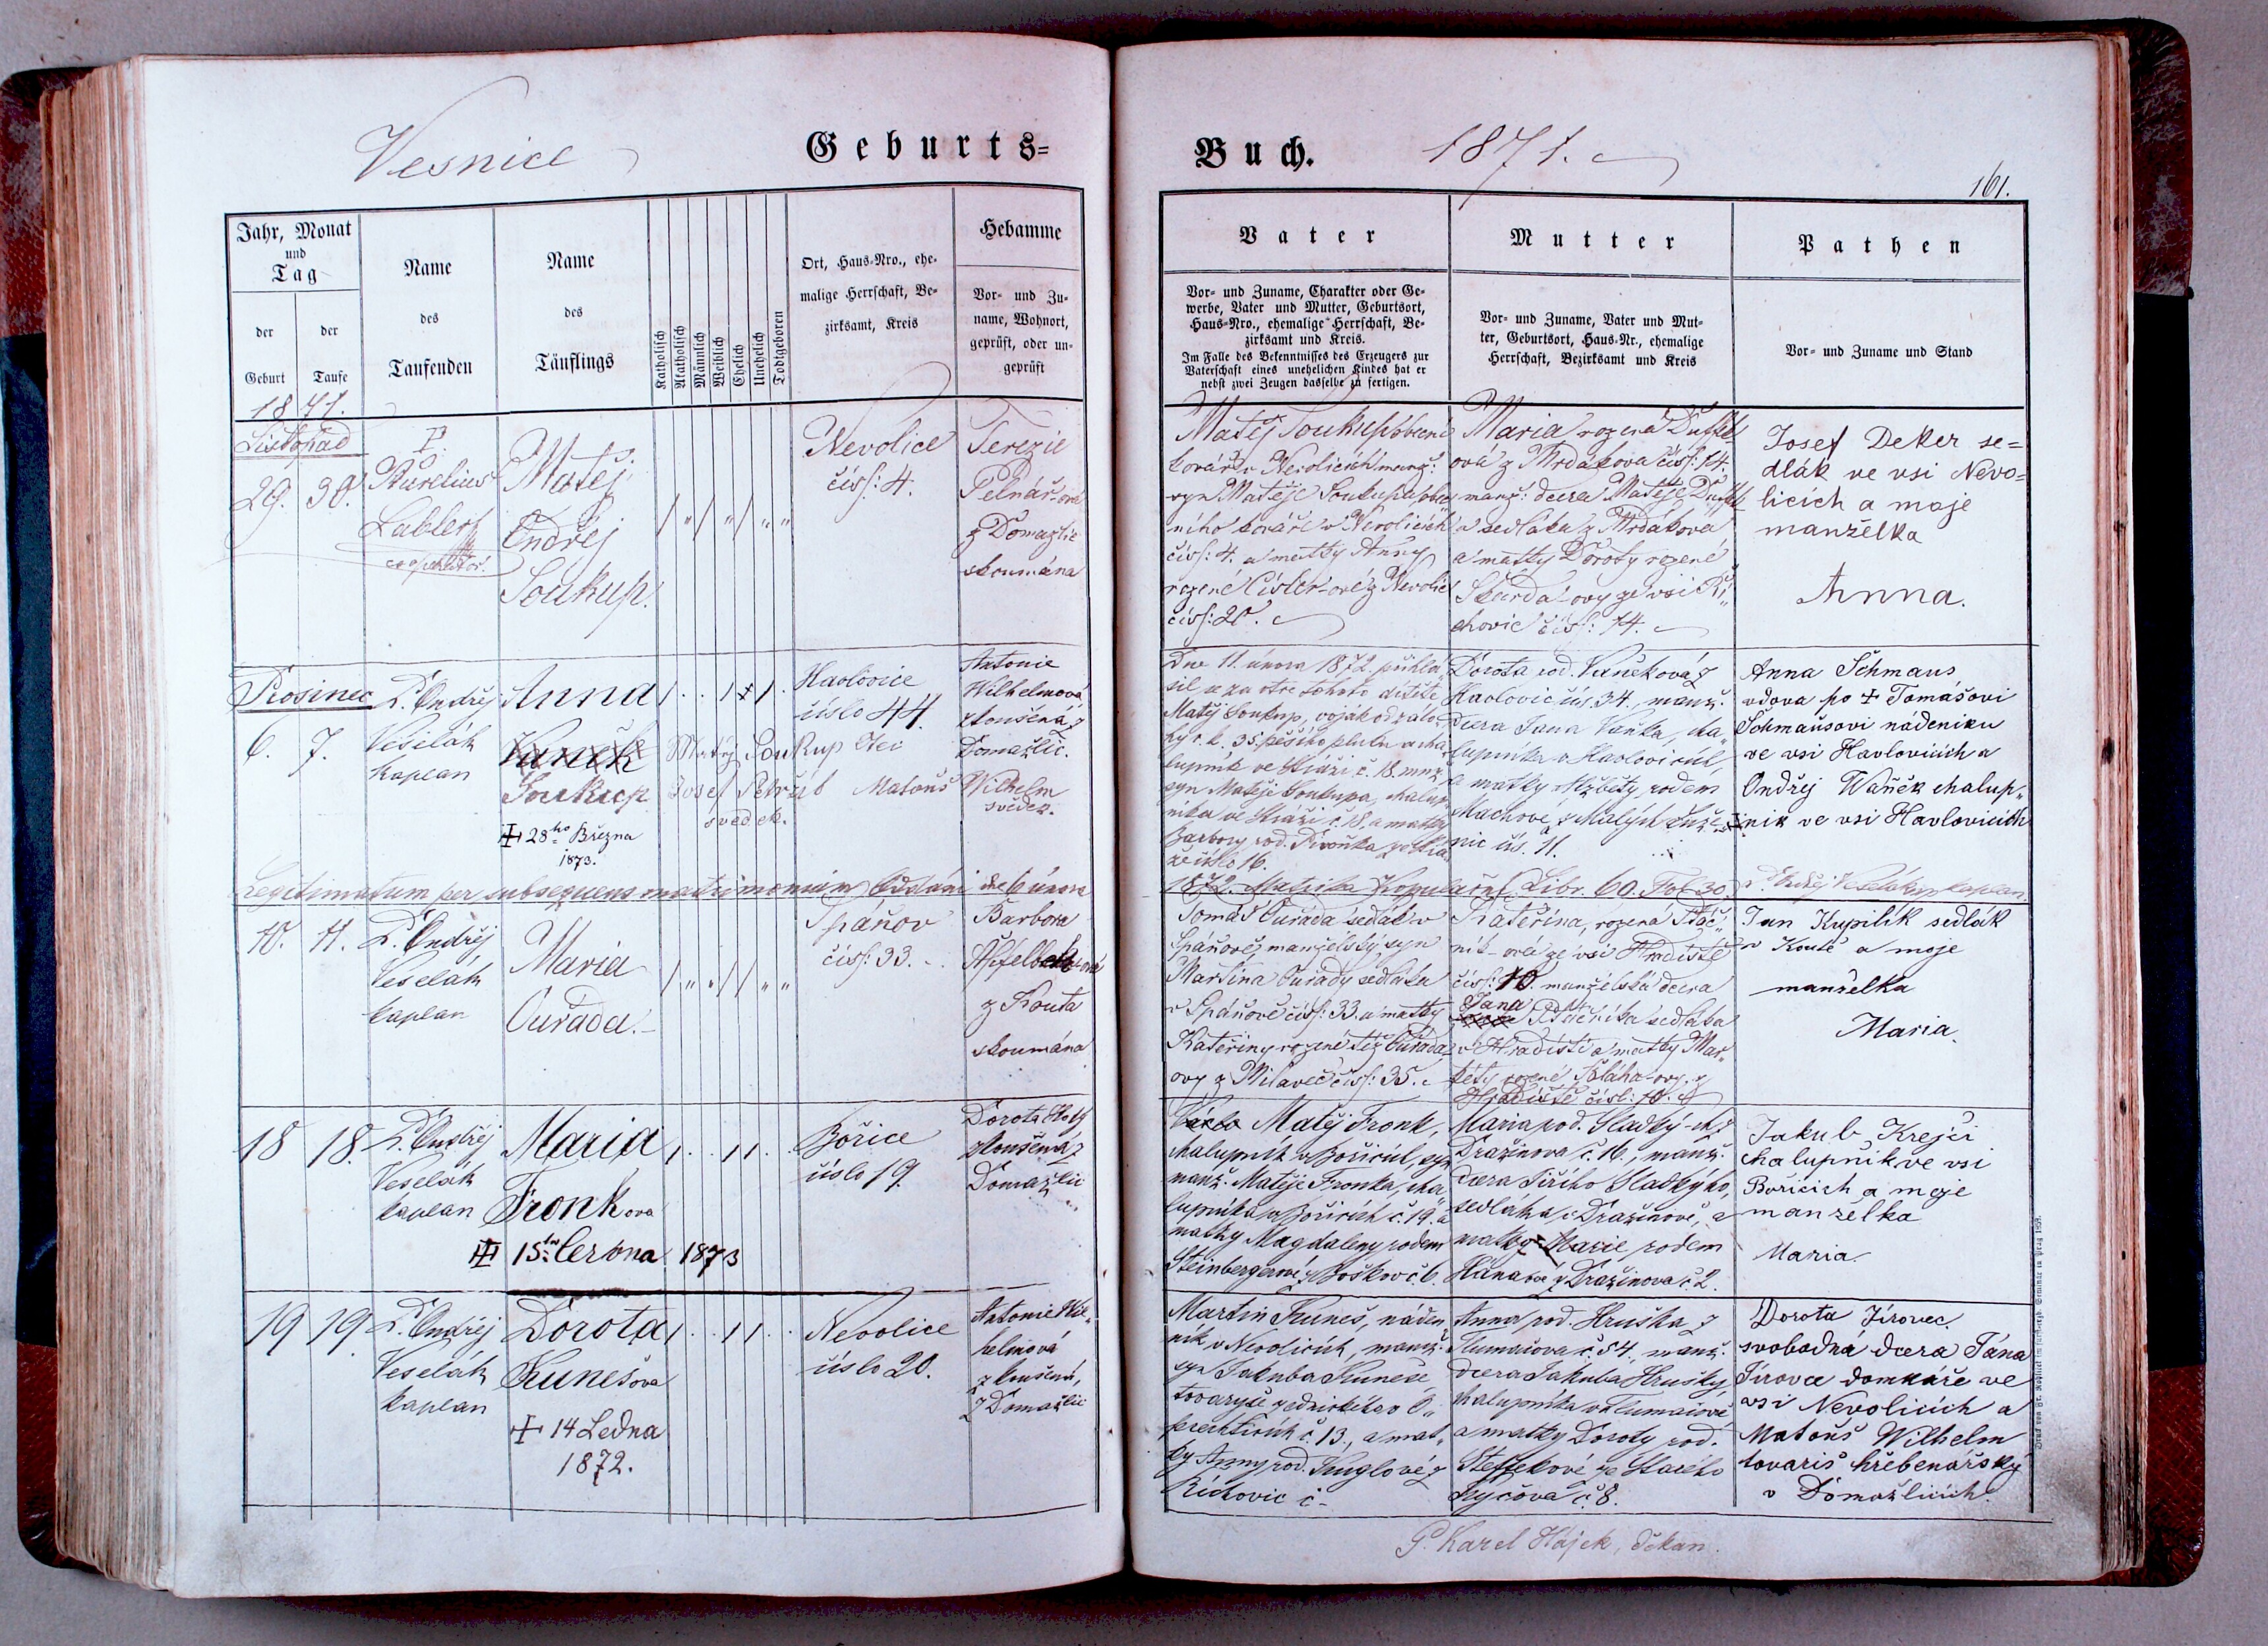 Vesnice
Geburts=
Buch.
1871.
161.
Jahr, Monat
und
Tag
der
Geburt
der
Taufe
Name
des
Taufenden
Name
des
Täuflings
Katholisch
Akatholisch
Männlich
Weiblich
Ehelich
Unehelich
Todtgeboren
Ort, Haus-Nro., ehe-
malige Herrschaft, Be-
zirksamt, Kreis
Hebamme
Vor- und Zu-
name, Wohnort,
geprüft, oder un-
geprüft
Vater
Vor- und Zuname, Charakter oder Ge-
werbe, Vater und Mutter, Geburtsort,
Haus-Nro., ehemalige Herrschaft, Be-
zirksamt und Kreis.
Im Falle des Bekenntnisses des Erzeugers zur
Vaterschaft eines unehelichen Kindes hat er
nebst zwei Zeugen dasselbe zu fertigen.
Mutter
Vor- und Zuname, Vater und Mut-
ter, Geburtsort, Haus-Nr., ehemalige
Herrschaft, Bezirksamt und Kreis
Pathen
Vor- und Zuname und Stand
1871.
Listopad
29. 30.
P.
Aurelius
Labler
cooperator.
Matěj
Ondřej
Soukup.
Nevolice
čísl: 4.
Terezie
Pelnář-ová
z Domažlic
zkoumána
Matěj Soukup obecní
kovář v Nevolicích manž:
syn Matěje Soukupa obec
ního kováře v Nevolicích
čísl: 4. a matky Anny
rozené Císler-ové z Nevolic
čísl: 20.
Maria rozená
ová z Mrdákova čísl: 14.
manž: dcera Matěje
a sedláka z Mrdákova
a matky Doroty rozené
ovy ze vsi
chovic čísl: 14.
Josef Deker se=
dlák ve vsi Nevo=
licích a moje
manželka
Anna.
Prosinec
6. 7.
P. Ondřej
Veselák
kaplan
Anna
Vaněk
Soukup
28ho Března
1873.
Matěj Soukup otec
Josef Petržík Matouš Wilhelm
svědek. svědek.
Havlovice
číslo 44.
Antonie
Wilhelmová
zkoušená z
Domažlic.
Dne 11. února 1872 přihlá
sil se za otce tohoto dítěte
Matěj Soukup, voják od zálo-
hy c. k. 35. pěšího pluku a cha
lupník ve Stráži č. 18. manž.
syn Matěje Soukupa, chalup-
níka ve Stráži č. 18. a matky
Barbory rod. z Strá
že číslo 16.
Dorota rod. Vaněková z
Havlovic čís. 34., manž.
dcera Jana Vaňka, cha
lupníka v Havlovicích,
a matky Alžběty rodem
Machové z Malých Luže
nic čís. 11.
Anna Schmaus
vdova po + Tomášovi
Schmausovi nádeníku
ve vsi Havlovicích a
Ondřej Waněk chalup„
ník ve vsi Havlovicích
Legitimatum per subsequens matrimonium Oddáni dne 6 února
1872. Matrika Kopulační Libr. 60. Fol 30. P. Ondřej Veselák kaplan.
10. 11.
P. Ondřej
Veselák
kaplan
Maria
Ouřada.
Spáňov
čísl: 33.
Barbora
z Kouta
zkoumána
Tomáš Ouřada sedlák v
Spáňově, manželský syn
Martina Ouřady sedláka
v Spáňově čísl: 33. a matky
Kateřiny rozené též Ouřada
ovy z Milaveč čísl: 35.
Kateřina, rozená Ptáč„
ník-ová ze vsi Hradiště
čísl: 10. manželská dcera
Jana Ptáčníka sedláka
v Hradišti a matky Mar„
kéty rozené ovy z
Hradiště čísl: 10.
Jan Kupilík sedlák
v Koutě a moje
manželka
Maria.
18 18.
P. Ondřej
Veselák
kaplan
Maria
Fronkova
15ho Června 1873
Bořice
číslo 19
Dorota
zkoušená z
Domažlic
Matěj Fronk,
chalupník v Bořicích, syn
manž. Matěje Fronka, cha
lupníka v Bořicích č. 19. a
matky Magdaleny rodem
Steinbergerové z Boškov č. 6.
Maria rod. Sladký-ch z
Dražinova č. 16., manž.
dcera Jiřího Sladkýho,
sedláka v Dražinově, a
matky Marie, rodem
Hánaové z Dražinova č. 2.
Jakub Krejčí
chalupník ve vsi
Bořicich a moje
manželka
Maria.
19 19.
P. Ondřej
Veselák
kaplan
Dorota
Kunešova
14 Ledna
1872.
Nevolice
číslo 20.
Antonie Wil„
helmová
zkoušená,
z Domažlic
Martin Kuneš, náden
ník v Nevolicích, manž.
syn Jakuba Kuneše,
tovaryše zednického v O„
prechticích č. 13., a mat„
ky Anny rod. Kuglové z
Řičkovic č-
Anna rod. Hruška z
Tlumačova č. 54., manž.
dcera Jakuba Hrušky,
chalupníka v Tlumačově
a matky Doroty rod.
Steffekové ze Starého
č. 8.
Dorota Jírovec.
svobodná dcera Jána
Jírovce domkáře ve
vsi Nevolicích a
Matouš Wilhelm
tovariš hřebenářský
v Domažlicích.
P. Karel Hájek, děkan.